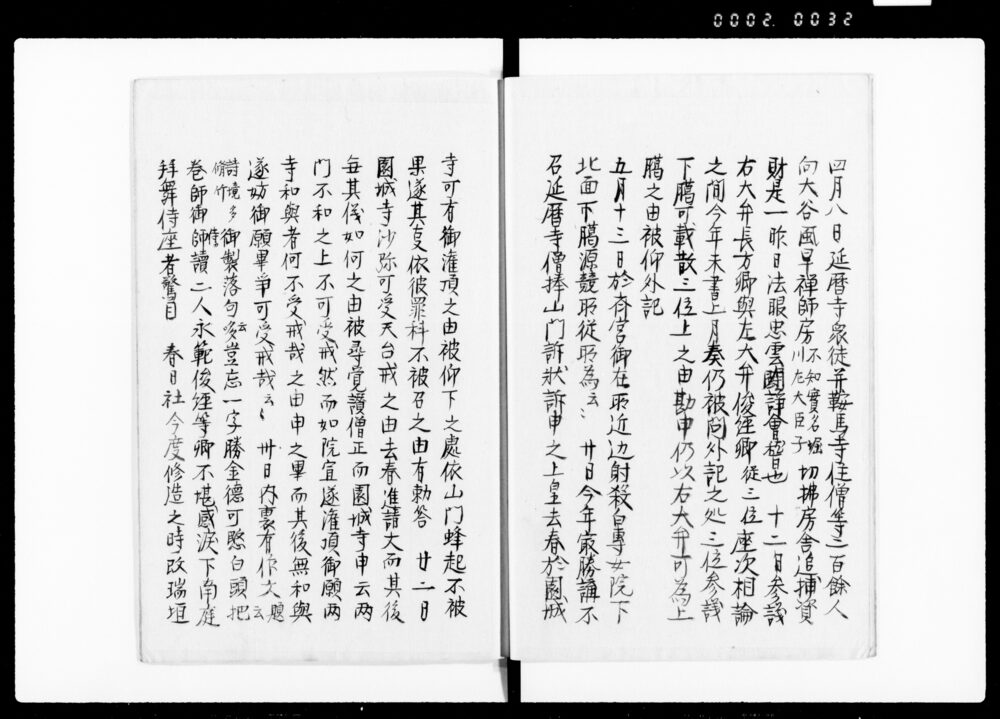 0002.0032
四月八日延暦寺衆徒并鞍馬寺住僧等二百餘人
向大谷風早禅師房不知實名堀川左大臣子切拂房舎追捕資
財是一昨日法眼忠雲闘諍會稽也　十二日参議
右大弁長方卿與左大弁俊経卿従三位座次相論
之間今年未書上月奏仍被問外記之処三位参議
下臈可載散三位上之由勘申仍以右大弁可為上
臈之由被仰外記
五月十三日於斎宮御在所近辺射殺白専女院下
北面下臈源競郎従所為云〻　廿日今年最勝講不
召延暦寺僧捧山門訴状訴申之上皇去春於園城
寺可有御潅頂之由被仰下之處依山門蜂起不被
果遂其夏依彼罪科不被召之由有勅答　廿二日
園城寺沙弥可受天台戒之由去春進請文而其後
毎其儀如何之由被尋覚讃僧正而園城寺申云両
門不和之上不可受戒然而如院宣遂潅頂御願両
寺和與者何不受戒哉之由申之畢而其後無和與
遂妨御願畢争可受戒哉云〻　卅日内裏有作文題云
詩境多脩竹御製落句云豈忘一字勝金徳可愍白頭把
巻師御師讀二人永範俊経等卿不堪感涙下南庭
拜舞侍座者驚目　春日社今度修造之時改瑞垣